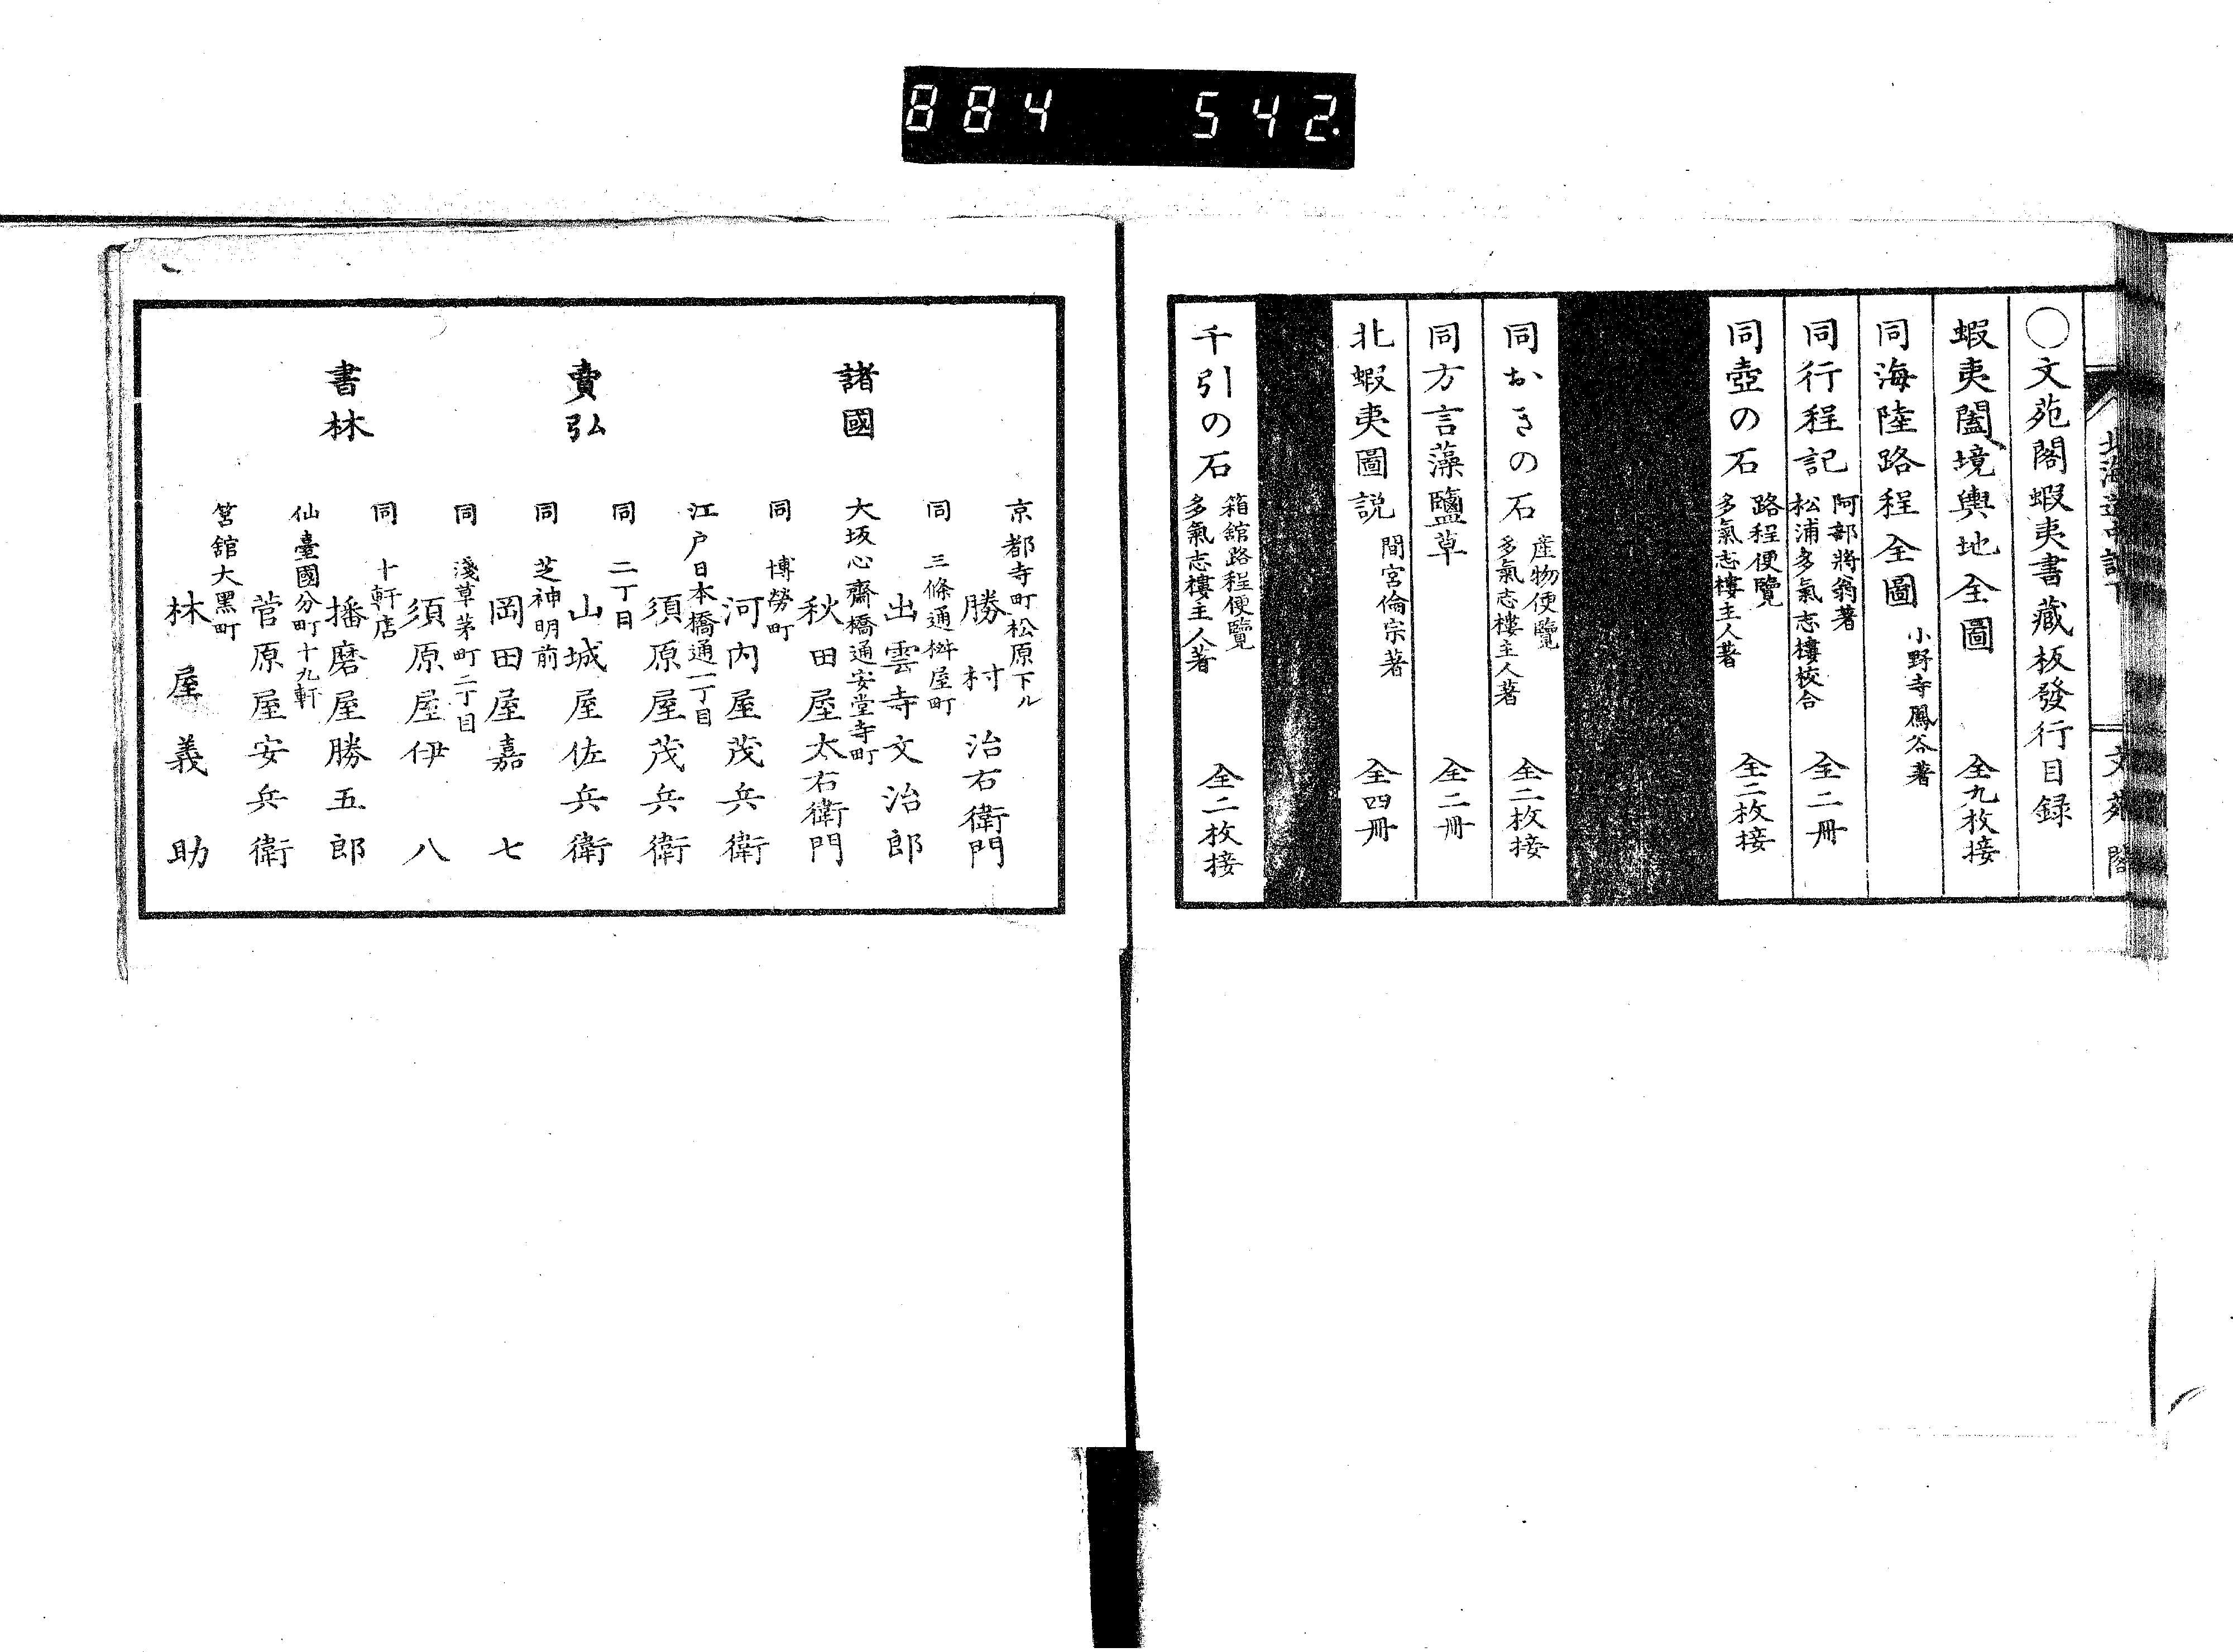 884 542
文苑閣
○文苑閣蝦夷書藏板發行目録
蝦夷闔境輿地全圖 全九枚接
同海陸路程全圖 小野寺鳳谷著
同行程記 阿部將翁著 松浦多氣志樓校合 全二冊
同壺の石 路程便覽 多氣志樓主人著 全二枚接
同おきの石 産物便覽 多氣志樓主人著 全二枚接
同方言藻鹽草 全二冊
北蝦夷圖説 間宮倫宗著 全四冊
千引の石 箱舘路程便覽 多氣志樓主人著 全二枚接
諸國
賣弘
書林
京都寺町松原下ル
勝村治右衛門
同 三條通桝屋町
出雲寺文治郎
大坂心齋橋通安堂寺町
秋田屋太右衛門
同 博勞町
河内屋茂兵衛
江戸日本橋通一丁目
須原屋茂兵衛
同 二丁目
山城屋佐兵衛
同 芝神明前
岡田屋嘉七
同 淺草茅町二丁目
須原屋伊八
同 十軒店
播磨屋勝五郎
仙臺國分町十九軒
菅原屋安兵衛
筥舘大黒町
林屋義助